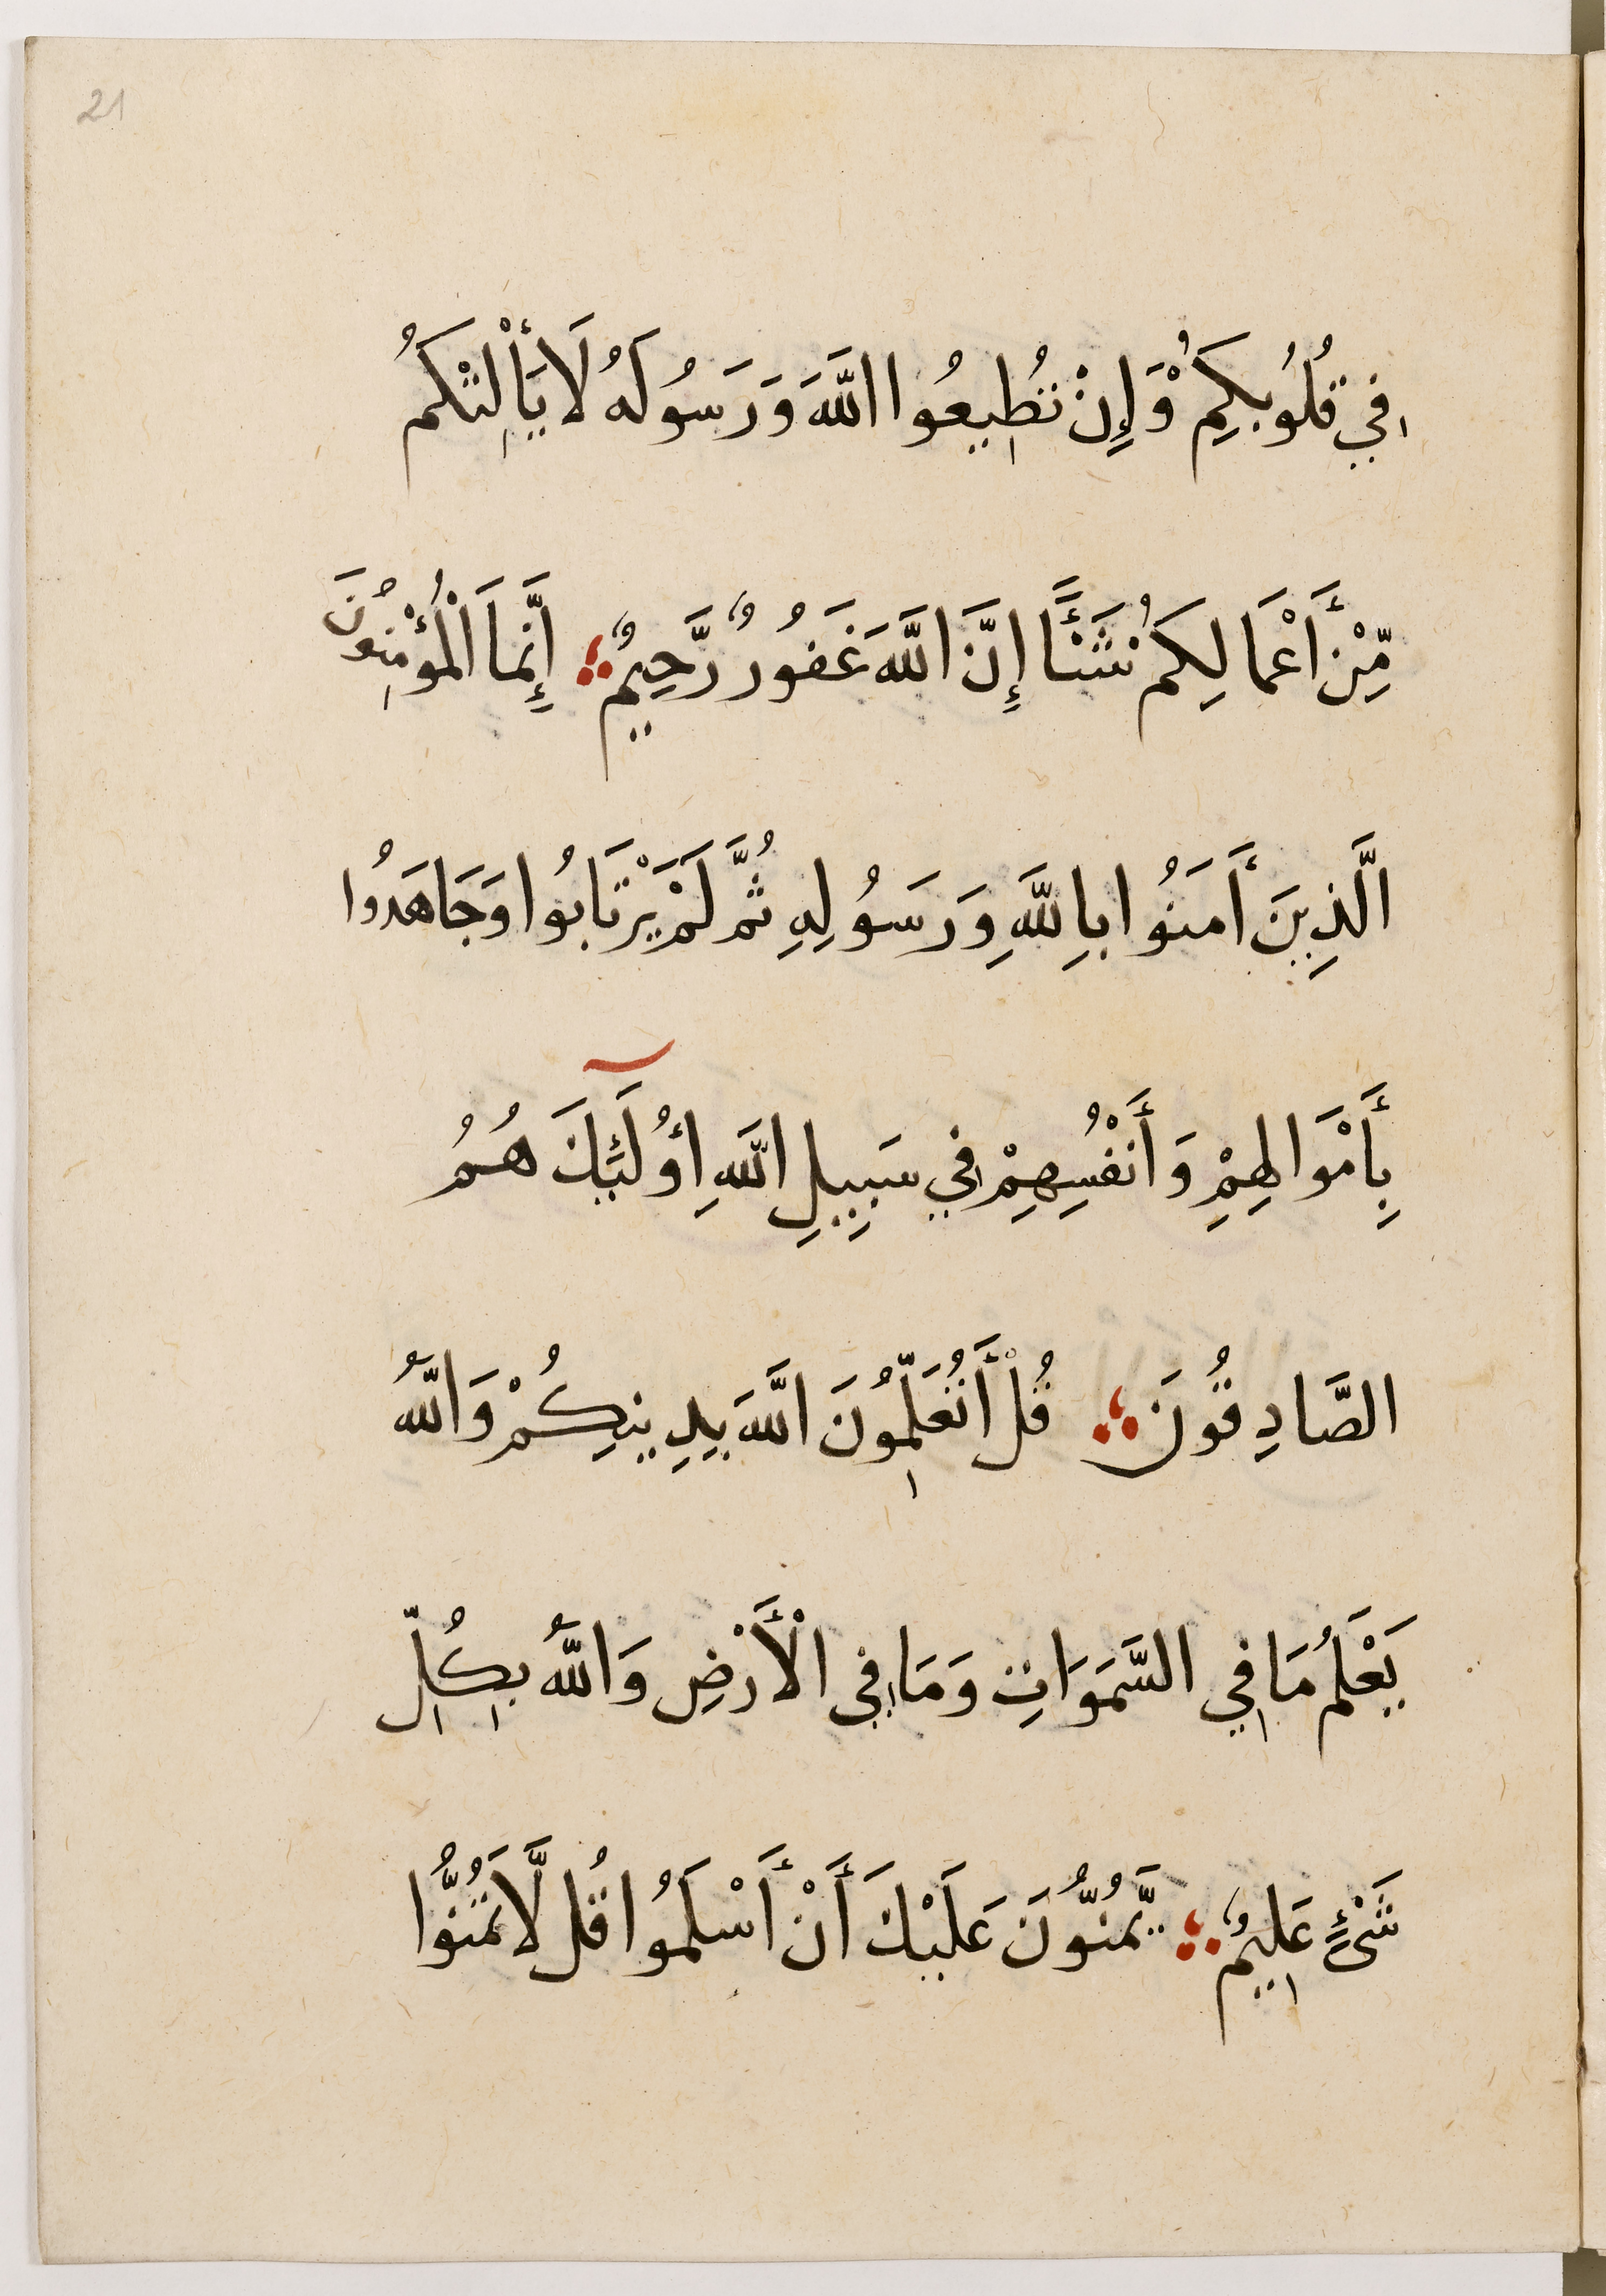 21
في قُلُوبِكُمْ وَإِنْ تُطِيعُوا اللَّهَ وَرَسُولَهُ لَا يَأْلِتْكُمُ
مِّنْ أَعْمَالِكُمْ شَئًْا إِنَّ اللَّهَ غَفُورٌ رَّحِيمٌ ؞ إِنَّمَا الْمُؤْمِنُونَ
الَّذِينَ أَمَنُوا بِاللَّهِ وَرَسُولِهِ ثُمَّ لَمْ يَرْتَابُوا وَجَاهَدُوا
بِأَمْوَالِهِمْ وَأَنْفُسِهِمْ فِي سَبِيلِ اللَّهِ أُولَئِكَ هُمُ
الصَّادِقُونَ ؞ قُلْ أَتُعَلِّمُونَ اللَّهَ بِدِينِكُمْ وَاللَّهُ
يَعْلَمُ مَا فِي السَّمَوَاتِ وَمَا فِي الْأَرْضِ وَاللَّهُ بِكُلِّ
شَيْءٍ عَلِيمٌ ؞ يَمُنُّونَ عَلَيْكَ أَنْ أَسْلَمُوا قُل لَّا تَمُنُّوا